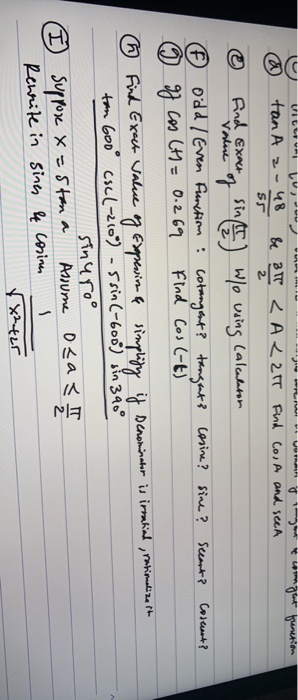 function
(d) tan A = - 48/55 & 3π/2 < A < 2π Find Cos A and sec A
(e) Find Exact Value of sin(π/2) W/o using Calculator
(f) odd / Even Function : Cotangent? tangent? Cosine? Sine? Secant? Cosecant?
(g) If Cos (t) = 0.269 Find Cos (-t)
(h) Find Exact Value of Expression & simplify if Denominator is irrational, rationalize it
tan 600° csc(-210°) - 5 sin(-600°) sin 390°
sin 450°
(I) Suppose x = 5 tan a Assume 0 ≤ a ≤ π/2
Rewrite in sines & cosines 1/√x²+25